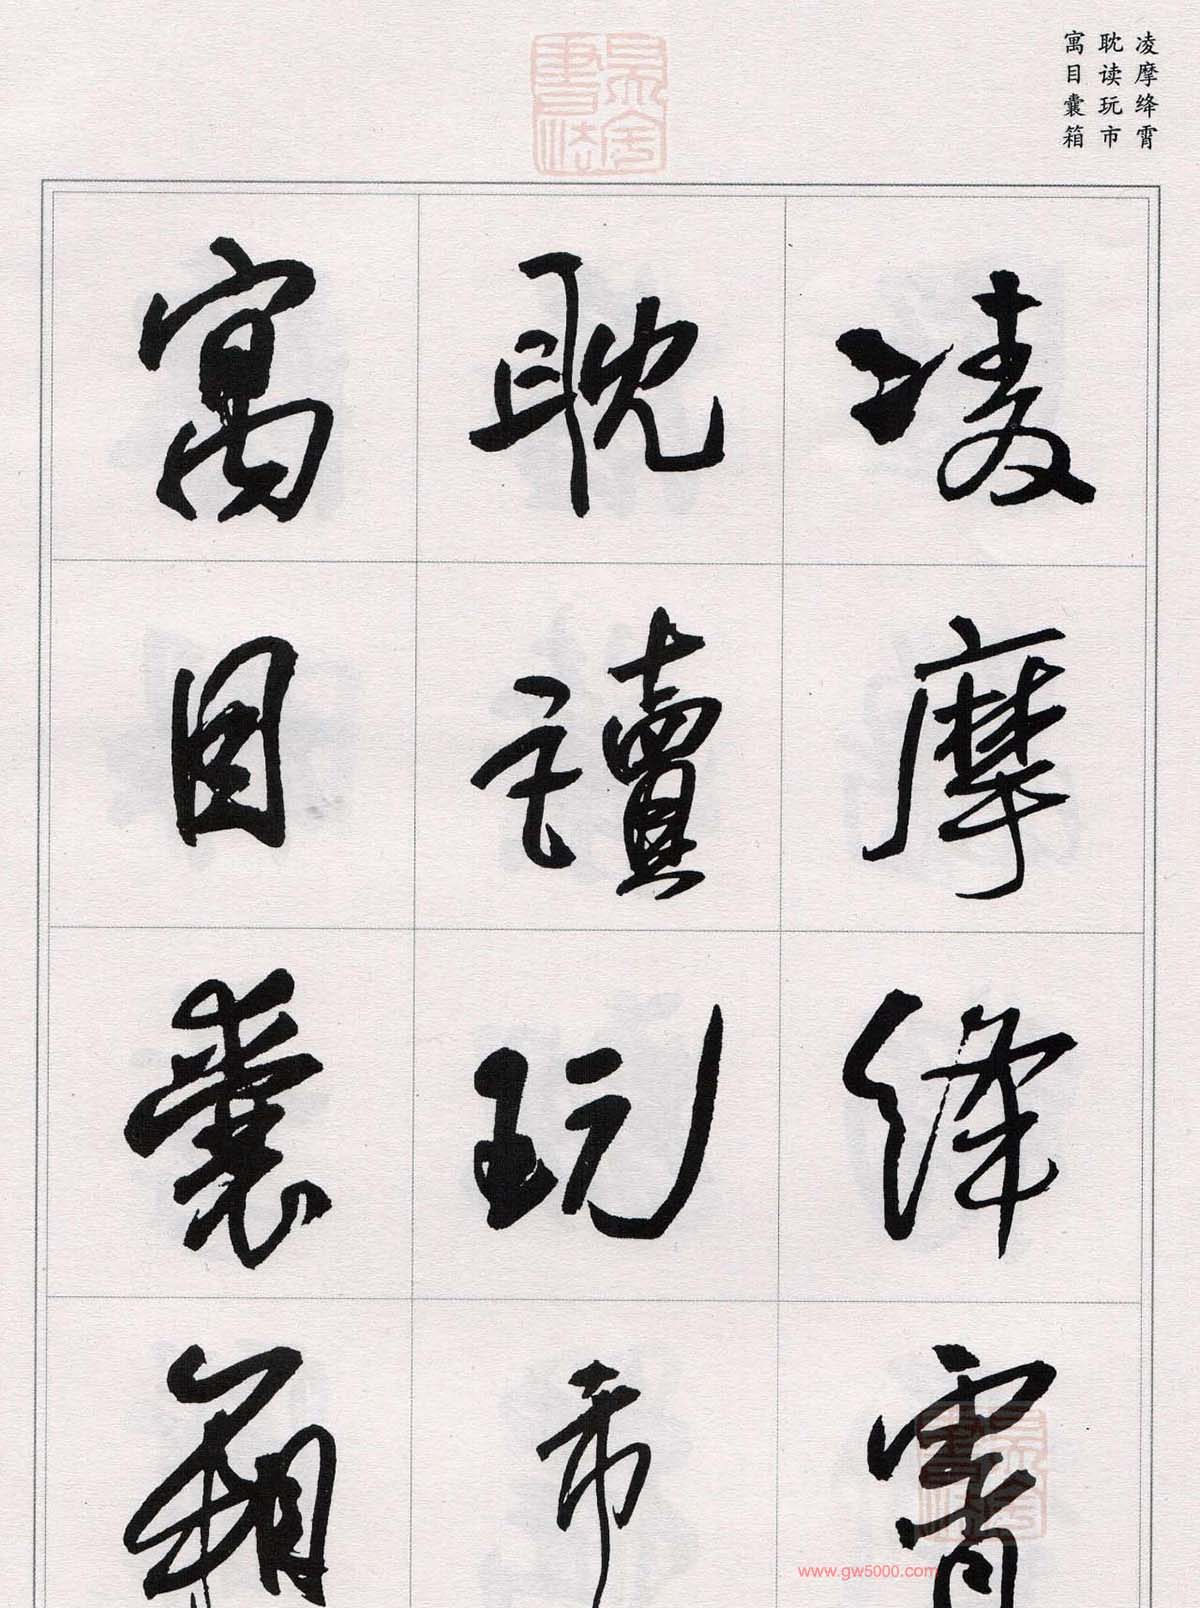 凌摩绛霄
耽读玩市
寓目囊箱
凌摩絳霄
耽讀玩市
寓目囊箱
www.gw5000.com